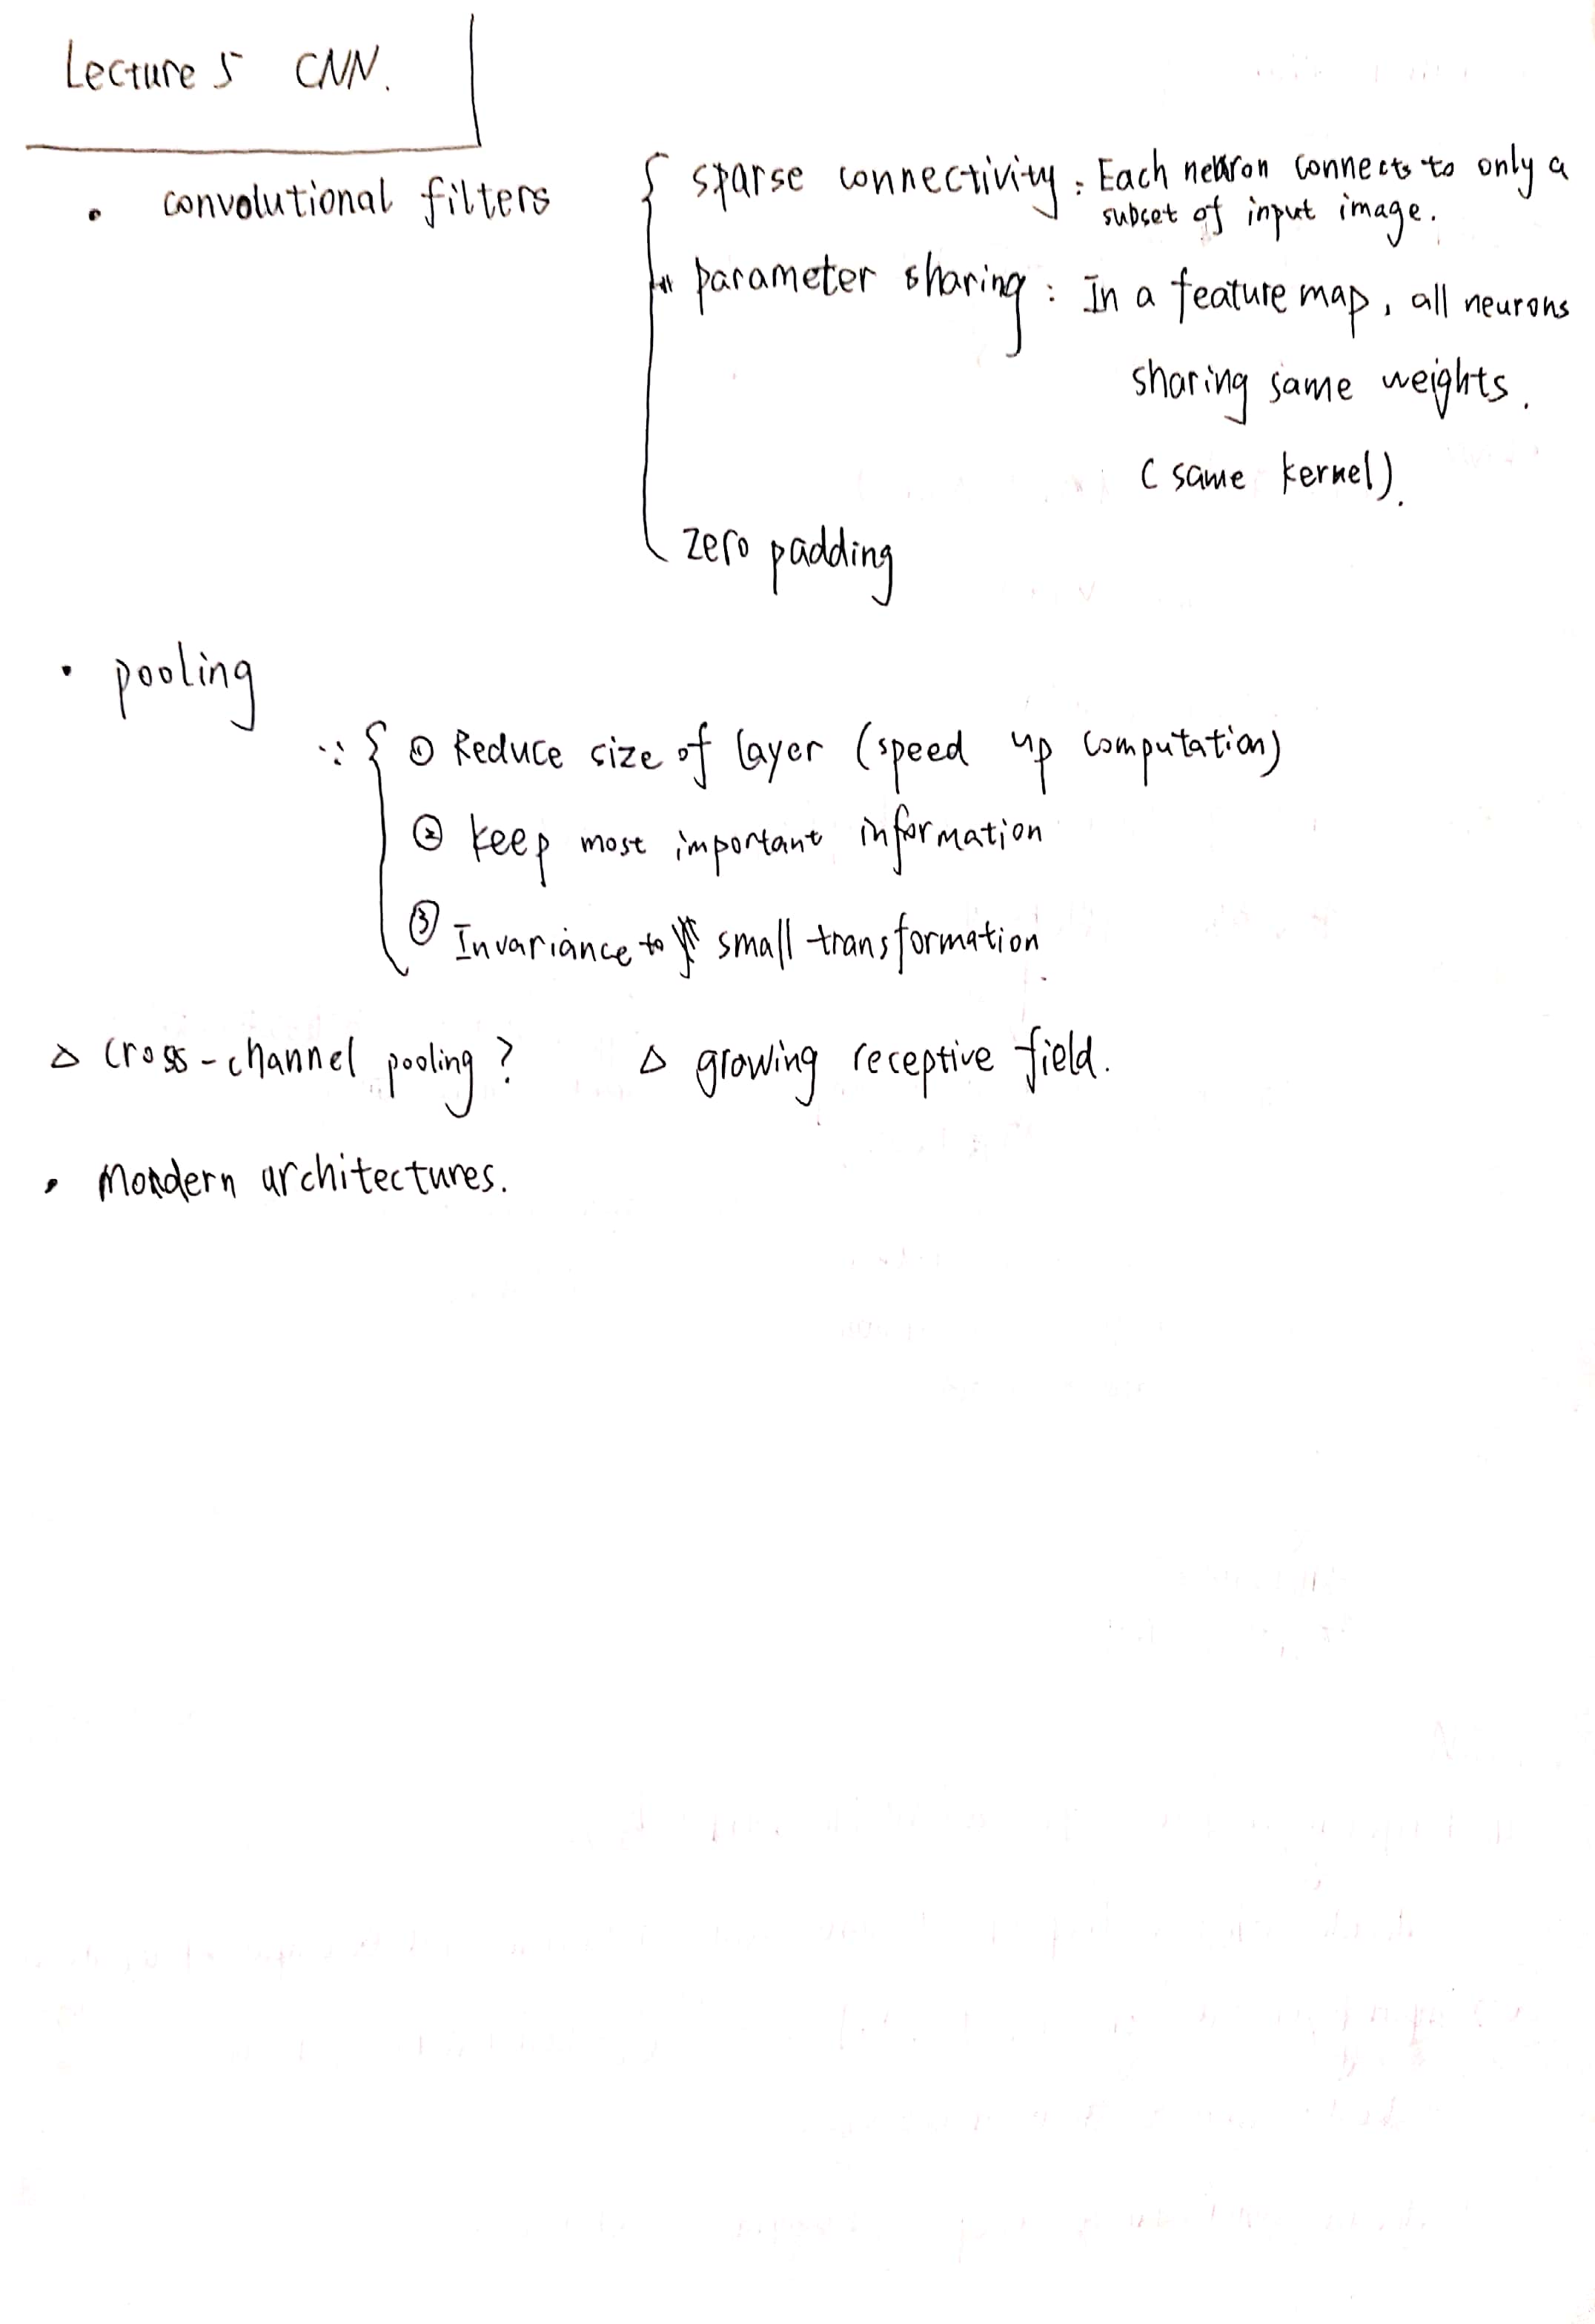 Lecture 5 CNN.
• convolutional filters
sparse connectivity : Each neuron connects to only a
subset of input image.
parameter sharing : In a feature map, all neurons
sharing same weights.
(same kernel).
zero padding
• pooling
∵ { ① Reduce size of layer (speed up computation)
② keep most important information
③ Invariance to small transformation
△ cross-channel pooling? △ growing receptive field.
• Mordern architectures.